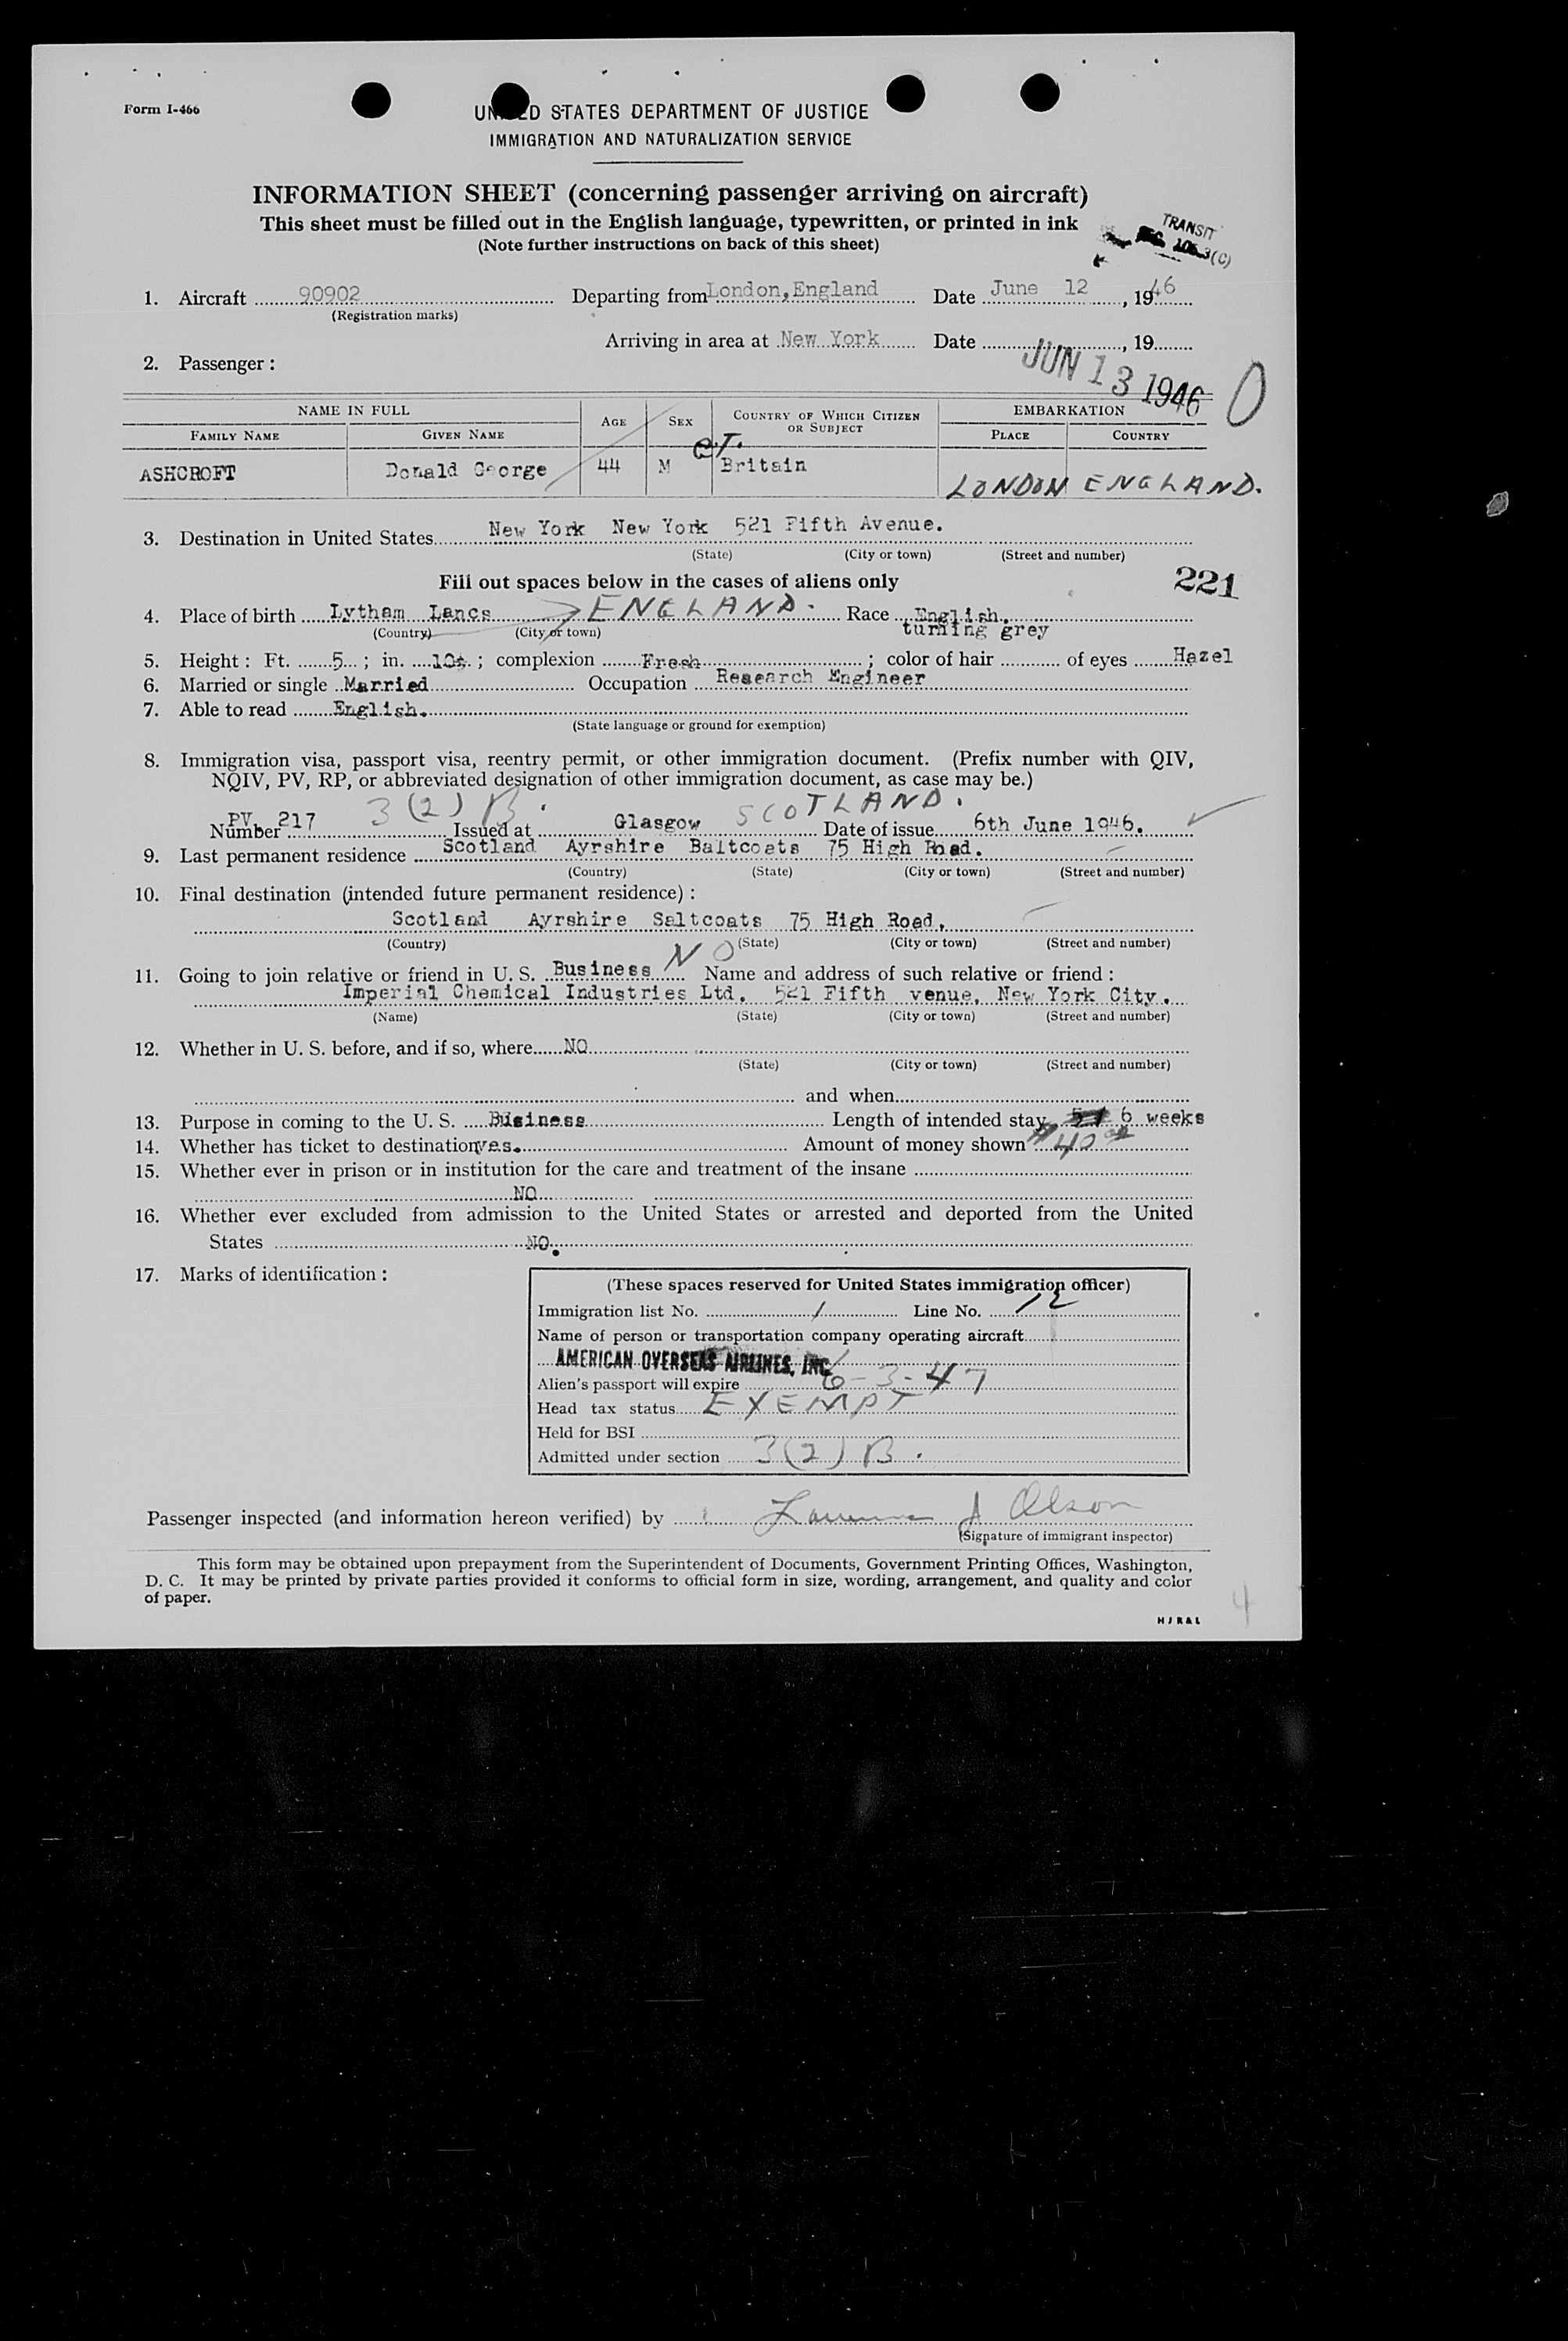 Form I-466
UNITED STATES DEPARTMENT OF JUSTICE
IMMIGRATION AND NATURALIZATION SERVICE
INFORMATION SHEET (concerning passenger arriving on aircraft)
This sheet must be filled out in the English language, typewritten, or printed in ink
(Note further instructions on back of this sheet)
TRANSIT
3(C)
1. Aircraft 90902 Departing from London, England Date June 12, 1946
(Registration marks)
Arriving in area at New York Date , 19
JUN 13 1946 0
2. Passenger :
NAME IN FULL AGE SEX COUNTRY OF WHICH CITIZEN OR SUBJECT EMBARKATION
FAMILY NAME GIVEN NAME PLACE COUNTRY
ASHCROFT Donald George 44 M Britain LONDON ENGLAND.
3. Destination in United States New York New York 521 Fifth Avenue.
(State) (City or town) (Street and number)
Fill out spaces below in the cases of aliens only
221
4. Place of birth Lytham Lancs ENGLAND. Race English.
(Country) (City or town) turning grey
5. Height : Ft. 5 ; in. 10½ ; complexion Fresh ; color of hair of eyes Hazel
6. Married or single Married Occupation Research Engineer
7. Able to read English.
(State language or ground for exemption)
8. Immigration visa, passport visa, reentry permit, or other immigration document. (Prefix number with QIV,
NQIV, PV, RP, or abbreviated designation of other immigration document, as case may be.)
3(2)B. SCOTLAND.
PV
Number 217 Issued at Glasgow Date of issue 6th June 1946.
9. Last permanent residence Scotland Ayrshire Saltcoats 75 High Road.
(Country) (State) (City or town) (Street and number)
10. Final destination (intended future permanent residence) :
Scotland Ayrshire Saltcoats 75 High Road.
(Country) (State) (City or town) (Street and number)
11. Going to join relative or friend in U. S. Business NO Name and address of such relative or friend :
Imperial Chemical Industries Ltd. 521 Fifth venue, New York City.
(Name) (State) (City or town) (Street and number)
12. Whether in U. S. before, and if so, where NO
(State) (City or town) (Street and number)
and when
13. Purpose in coming to the U. S. Business Length of intended stay 6 weeks
14. Whether has ticket to destination yes. Amount of money shown $40.00
15. Whether ever in prison or in institution for the care and treatment of the insane
NO
16. Whether ever excluded from admission to the United States or arrested and deported from the United
States NO.
17. Marks of identification :
(These spaces reserved for United States immigration officer)
Immigration list No. 1 Line No. 12
Name of person or transportation company operating aircraft
AMERICAN OVERSEAS AIRLINES, INC.
Alien's passport will expire 6-3-47
Head tax status EXEMPT
Held for BSI
Admitted under section 3(2)B.
Passenger inspected (and information hereon verified) by Lawrence J Olson
(Signature of immigrant inspector)
This form may be obtained upon prepayment from the Superintendent of Documents, Government Printing Offices, Washington,
D. C. It may be printed by private parties provided it conforms to official form in size, wording, arrangement, and quality and color
of paper.
H J R & L
4